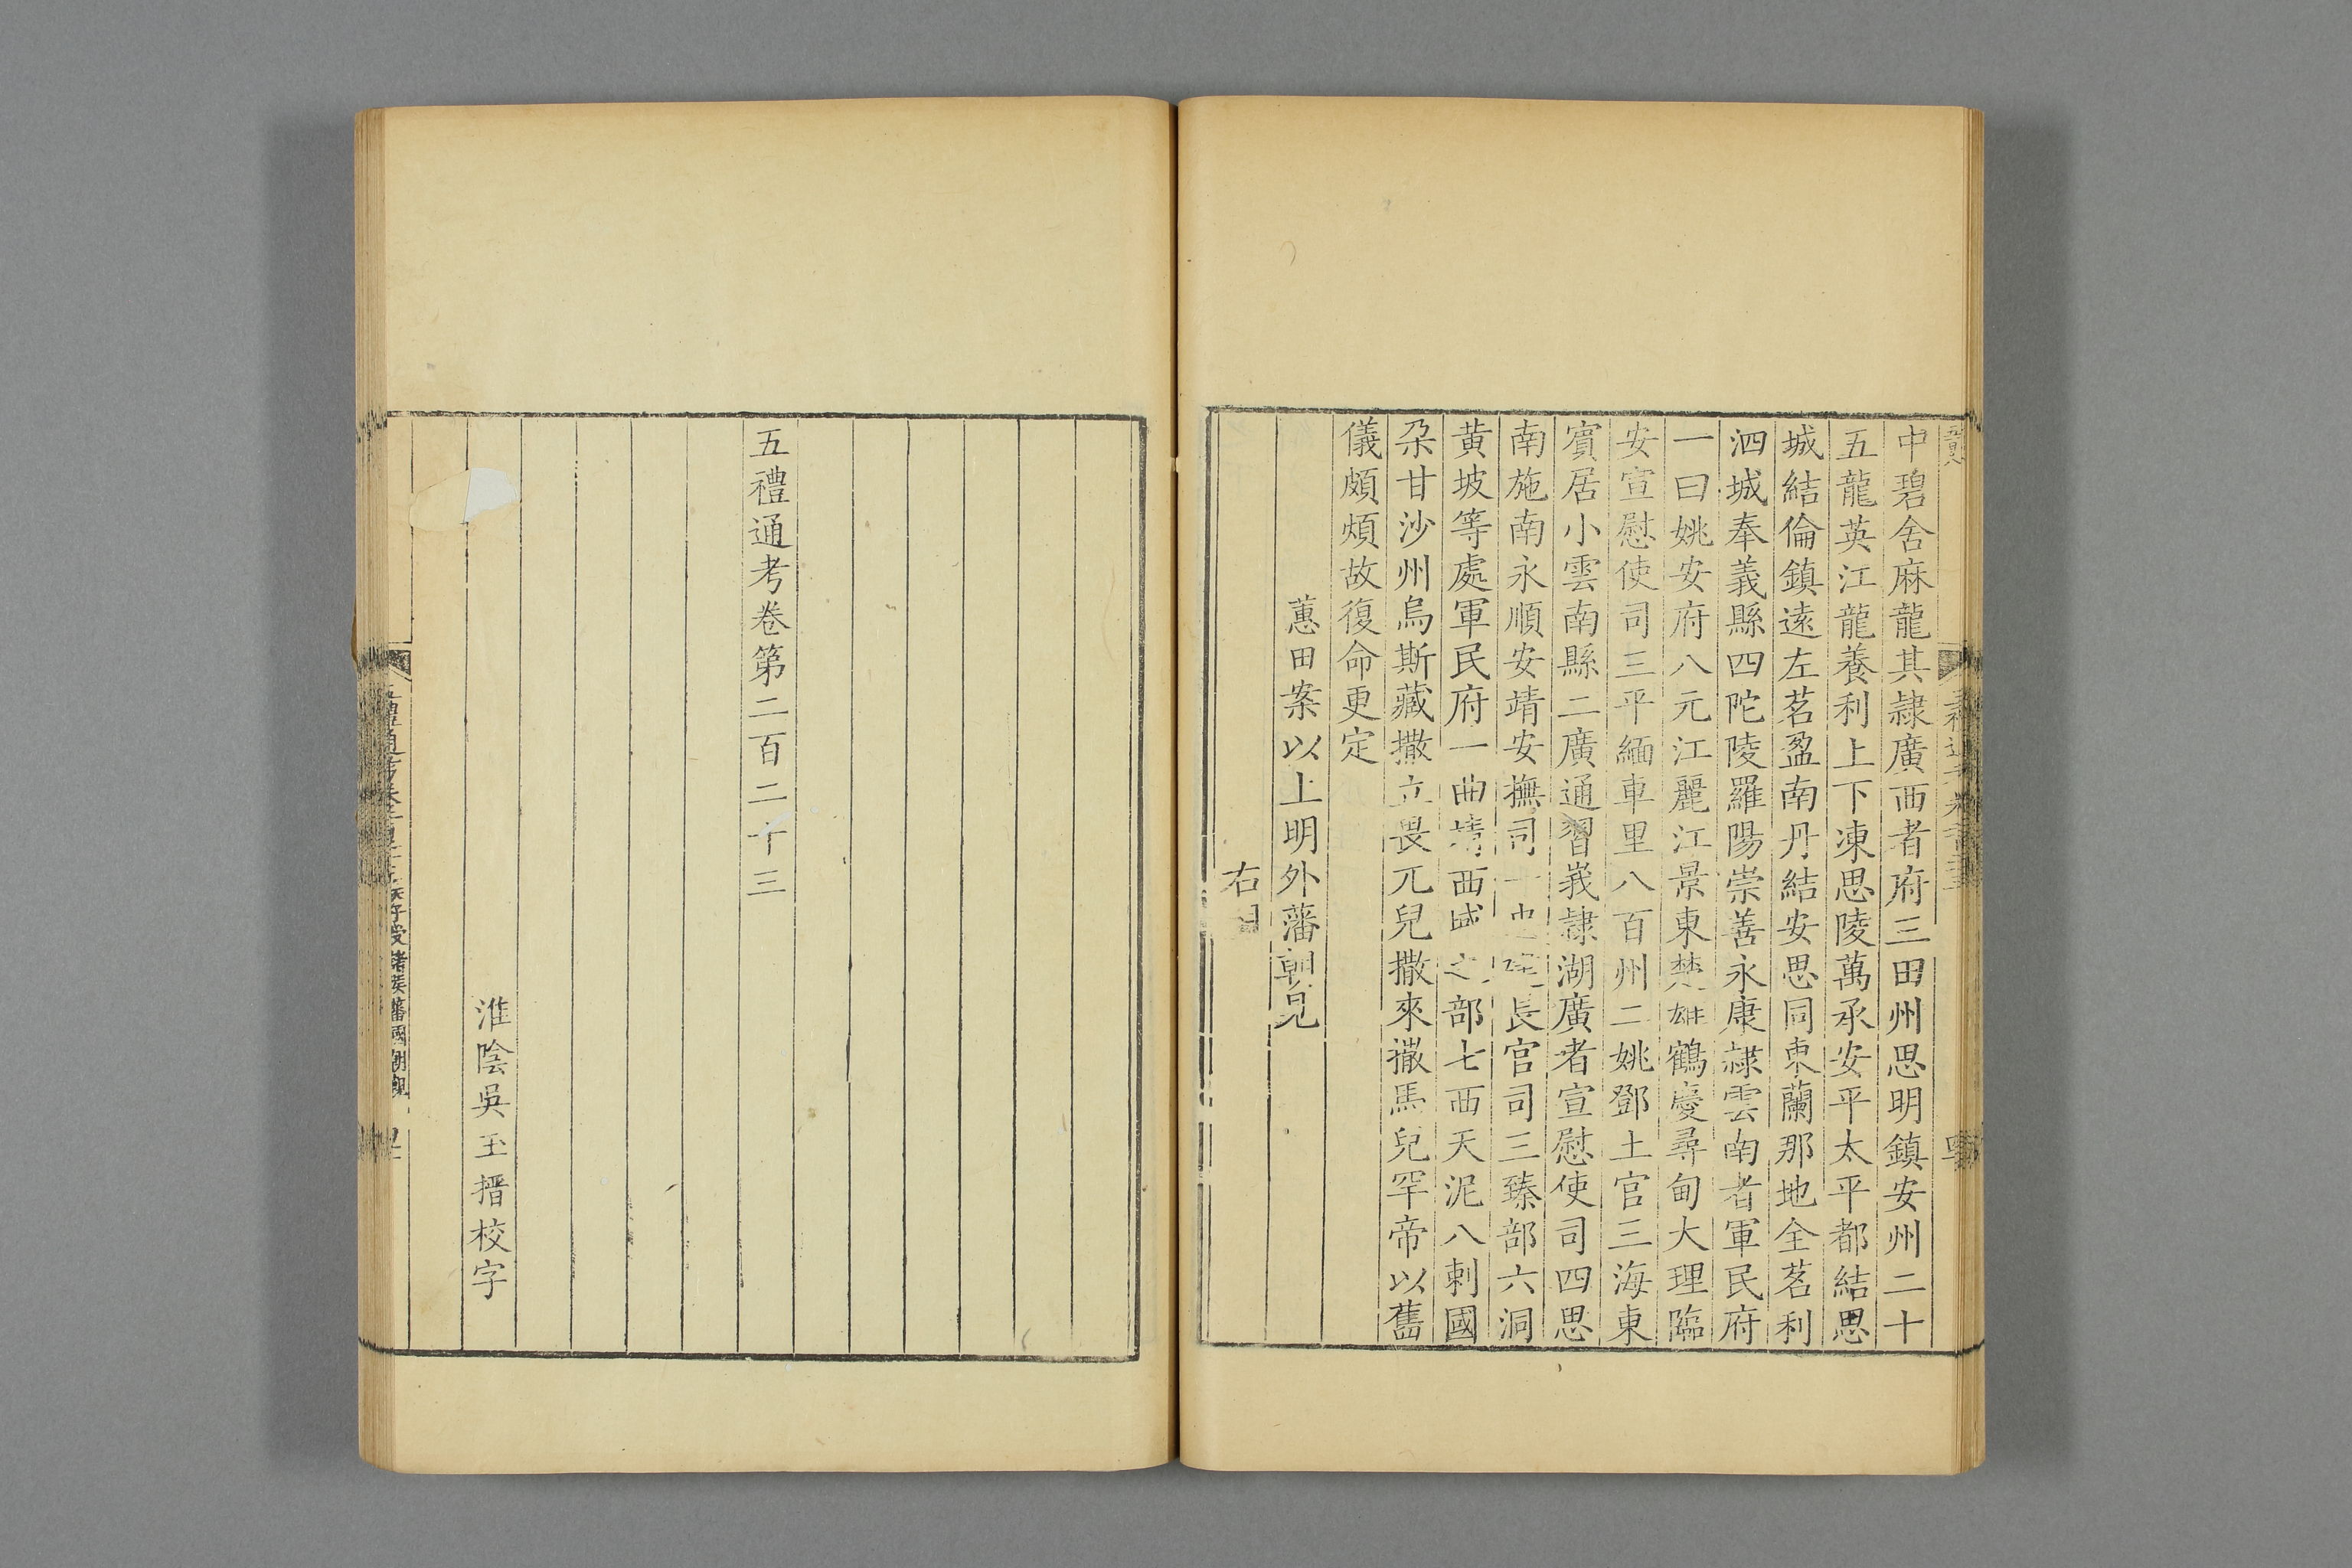 中碧舍麻龍其隷廣西者府三田州思明鎮安州二十
五龍英江龍養利上下凍思陵萬承安平太平都結思
城結倫鎮遠左茗盈南丹結安思同東蘭那地全茗利
泗城奉義縣四陀陵羅陽崇善永康隷雲南者軍民府
一曰姚安府八元江麗江景東楚雄鶴慶尋甸大理臨
安宣慰使司三平緬車里八百州二姚鄧土官三海東
賓居小雲南縣二廣通習峩隷湖廣者宣慰使司四思
南施南永順安靖安撫司一 長官司三臻部六洞
黃坡等處軍民府一曲靖西 之部七西天泥八剌國
朶甘沙州烏斯藏撒立畏兀兒撒來撒馬兒罕帝以舊
儀頗煩故復命更定
蕙田案以上明外藩朝見
右
五禮通考卷第二百二十三
淮陰吳玉搢校字
五禮通考卷
諸侯藩國朝覲